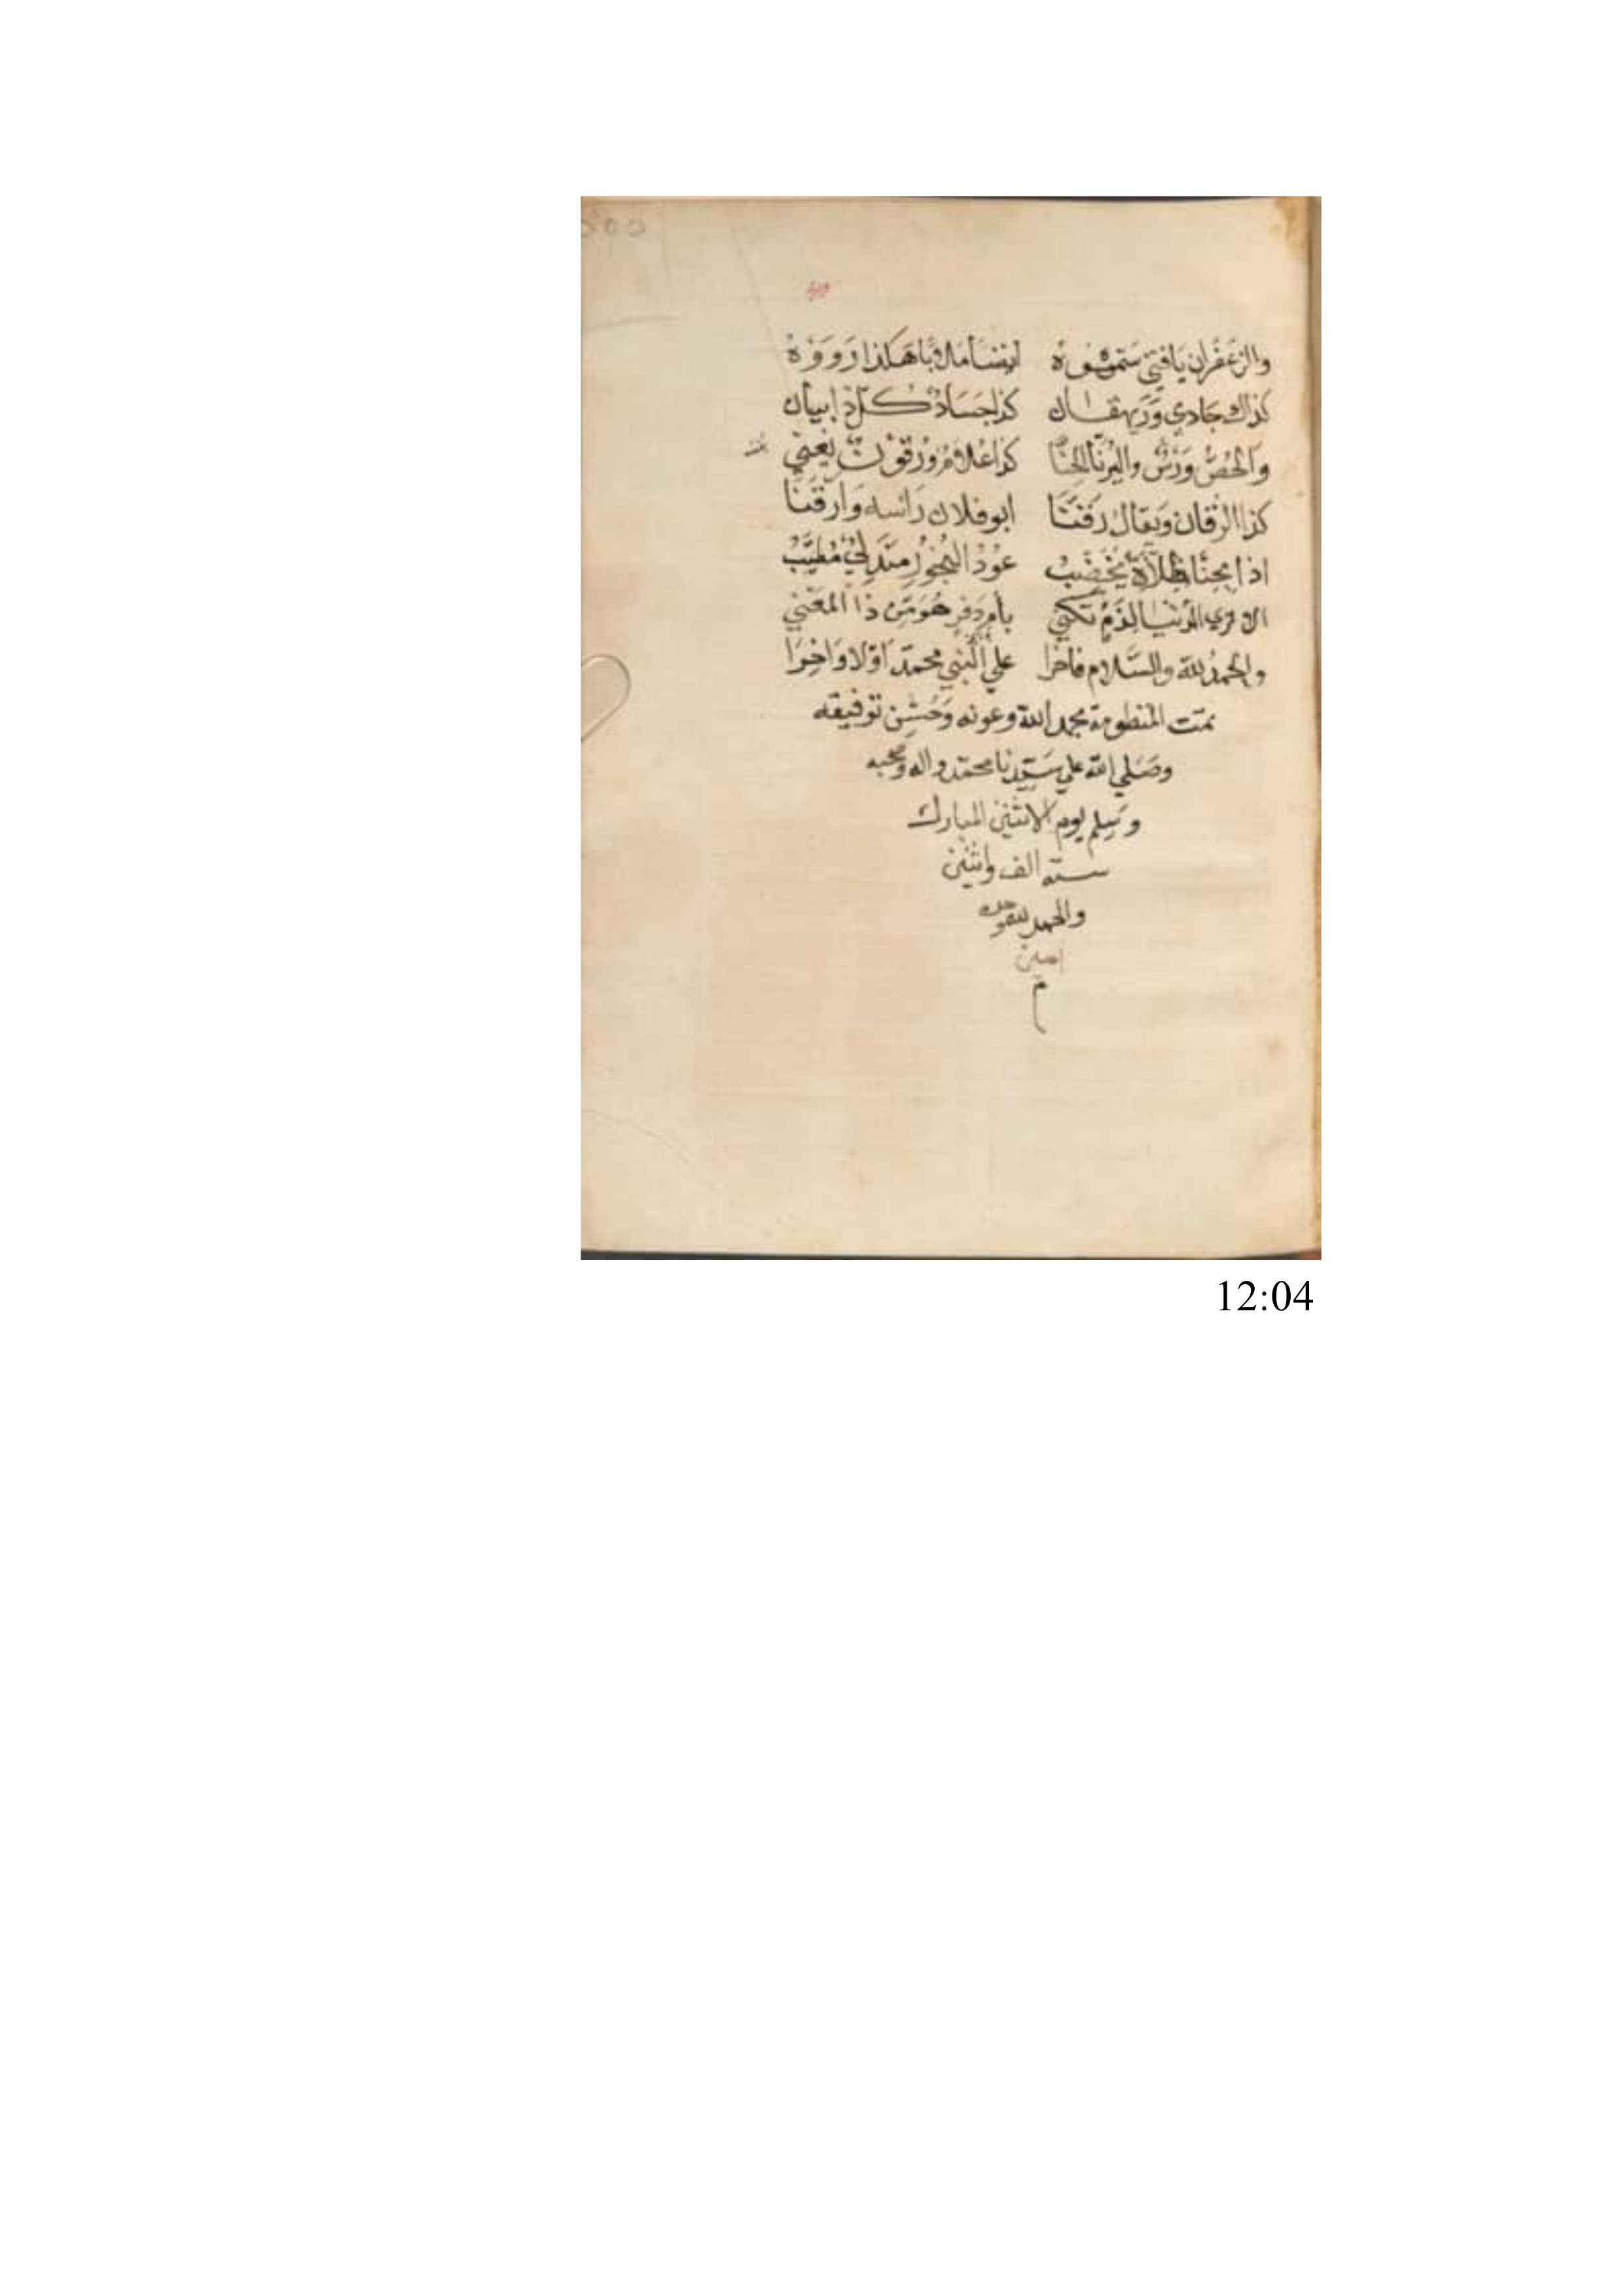 والزعفران يا فتى سموه ... هكذا رووه
كذاك جادي وريهقان كذا جساد كل ذا بيان
والحص ورس واليرنّا الحنّا كذا علام ورقون يعني
كذا الرقان ويقال رقنا ابو فلان راسه وارقنا
اذا بحنا ... يخضب عود البخور مندلي مطيب
ام دفر هو من ذا المعني
والحمد لله والسلام فاخرا علي النبي محمد اولا واخرا
تمت المنظومة بحمد الله وعونه وحسن توفيقه
وصلي الله علي سيدنا محمد واله وصحبه
وسلم يوم الاثنين المبارك
سنة الف واثنين
والحمد لله وحده
امين
م
12:04